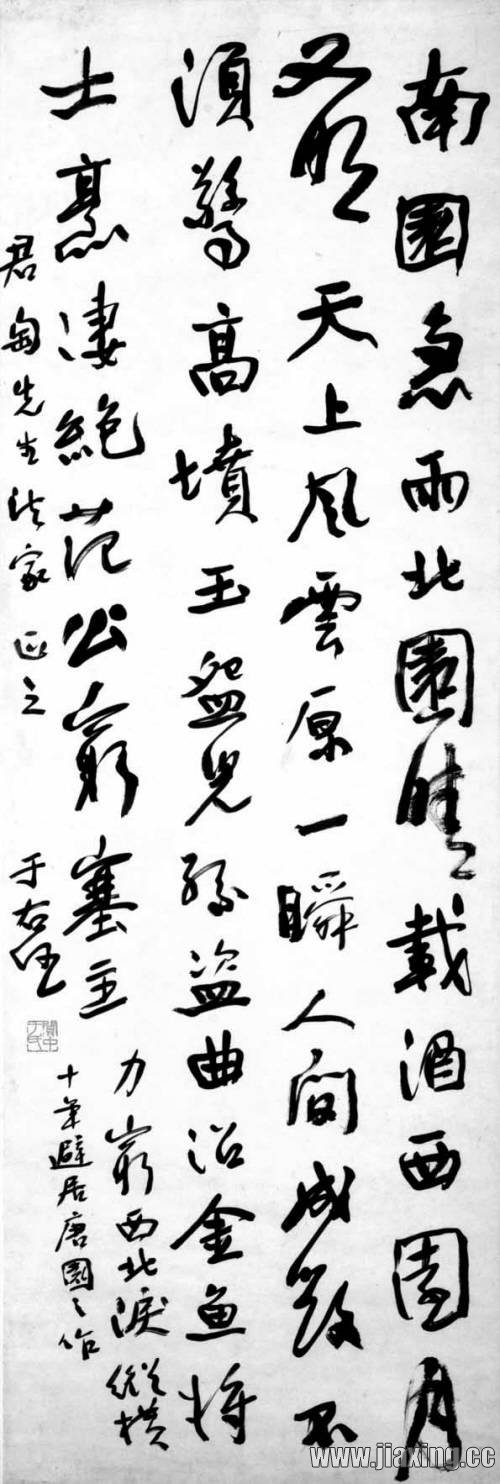 南園急雨北園晴載酒西園月
又明天上風雲原一瞬人間成敗不
須驚高墳玉盌兒孫盜曲沼金魚將
士烹凄絕范公窮塞主
力窮西北淚縱横
十年避居唐園之作
君匋先生法家正之
于右任
www.jiaxing.cc